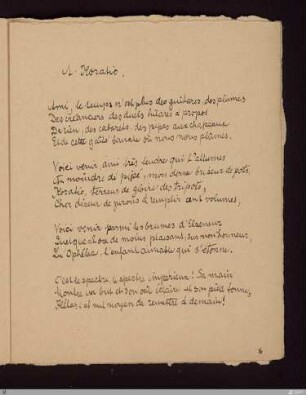 A Horatio.
Ami, le temps n'est plus des guitares, des plumes
Des créanciers, des duels hilares à propos
De rien, des cabarets, des pipes aux chapeaux
Et de cette gaîté banale où nous nous plûmes.
Voici venir, ami très tendre qui t'allumes
Au moindre dé pipé, mon doux briseur de pots,
Horatio, terreur et gloire des tripots,
Cher diseur de jurons à remplir cent volumes,
Voici venir parmi les brumes d'Elseneur
Quelque chose de moins plaisant, sur mon honneur,
Qu'Ophélia, l'enfant aimable qui s'étonne.
C'est le spectre, le spectre impérieux! Sa main
Montre un but et son œil éclaire et son pied tonne,
Hélas! et nul moyen de remettre à demain!